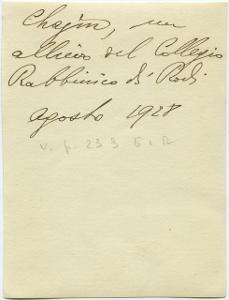 Chajm, un
allievo del Collegio
Rabbinico di Rodi
agosto 1928
v. p. 233 E. R